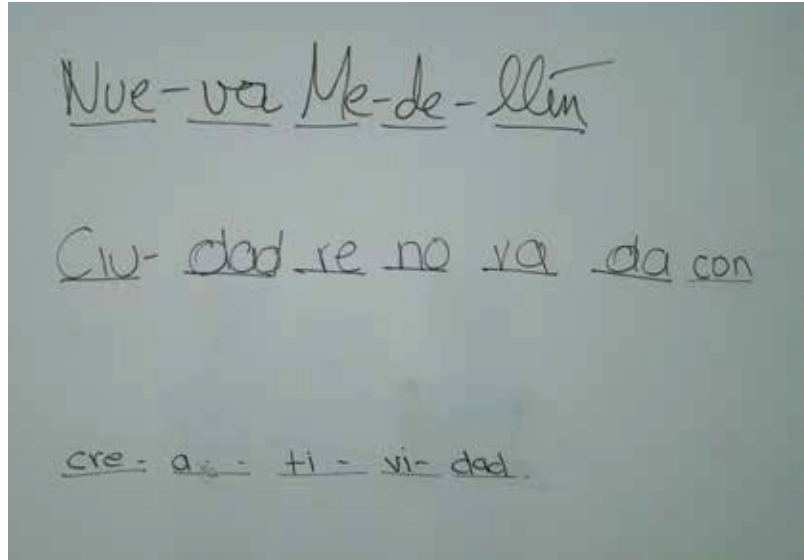 Nue-va Me-de-llín
Ciu- dad re no va da con
cre- a - ti - vi- dad.